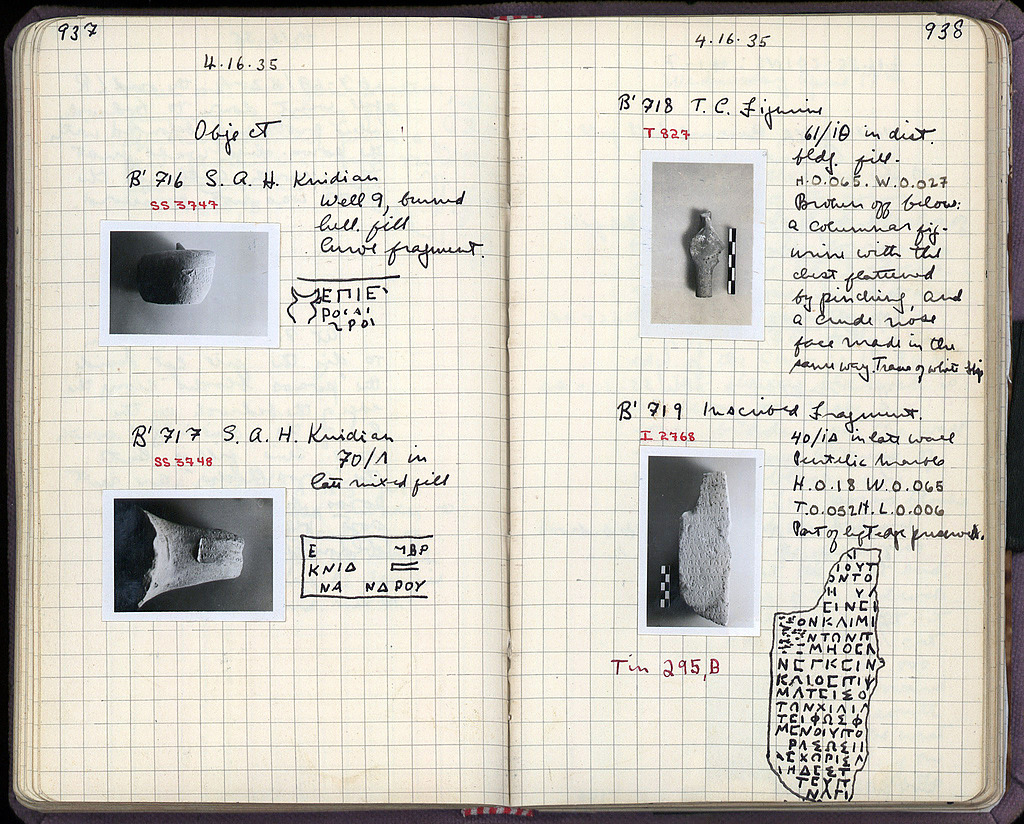 937
4.16.35
Object
B' 716 S. A. H. Knidian
SS 3747
Well 9, burned
hell. fill
Curve fragment.
ΕΠΙΕ
ΡΟΙ
B' 717 S. A. H. Knidian
SS 3748
70/Λ in
late mixed fill
Ε ΜΒΡ
ΚΝΙΔ
ΝΑ ΝΔΡΟΥ
938
4.16.35
B' 718 T. C. Figurine
T 827
61/ΙΘ in dist.
bldg. fill.
H.0.065. W.0.027
Broken off below:
a columnar fig-
urine with the
chest flattened
by pinching, and
a crude nose
face made in the
same way. Trace of white slip
B' 719 Inscribed Fragment.
I 2768
40/ΙΔ in late wall
Pentelic marble
H.0.18 W.0.065
T.0.052 H.L.0.006
Part of left edge preserved.
ΙΟΥΤ
ΟΝΤΟ
Η Υ
ΕΙΝΕΙ
ΟΝΚΛΙΜΙ
ΝΤΩΝΠ
ΜΗΟΕΛ
ΝΕΓΚΕΙΝ
ΚΛΙΟΣΠΙ
ΜΑΤΕΙΣΟ
ΤΩΝΧΙΛΙΑ
ΤΕΙΦΩΣΦ
ΜΕΝΟΙΥΠΟ
ΡΑΣΩΣΙΙ
ΕΧΩΡΙΣΛ
ΙΗΔΕΣΤ
ΤΕΥΠ
ΝΛΓΙ
Tin 295,B